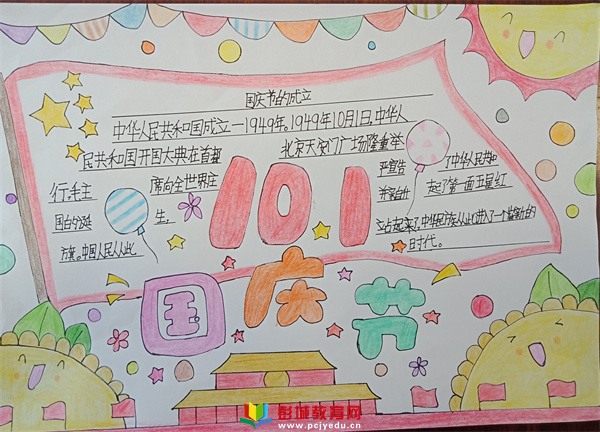 国庆节的成立
中华人民共和国成立一1949年。1949年10月1日,中华人
民共和国开国大典在首都 北京天安门广场隆重举
行,毛主 席向全世界庄 严宣告 了中华人民共和
国的诞 生, 并亲自升 起了第一面五星红
旗。中国人民从此 站起来了,中华民族从此进入了一个崭新的
时代。
10.1
国庆节
彭城教育网
www.pcjyedu.cn